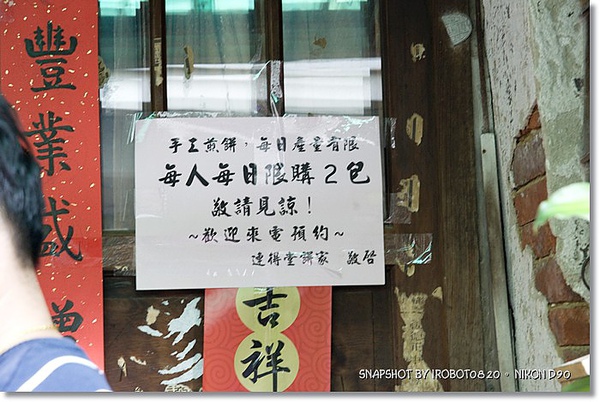 豐業盛
手工煎餅，每日產量有限
每人每日限購2包
敬請見諒！
~歡迎來電預約~
連得堂謝家 敬啓
吉祥
SNAPSHOT BY IROBOT0820。NIKON D90